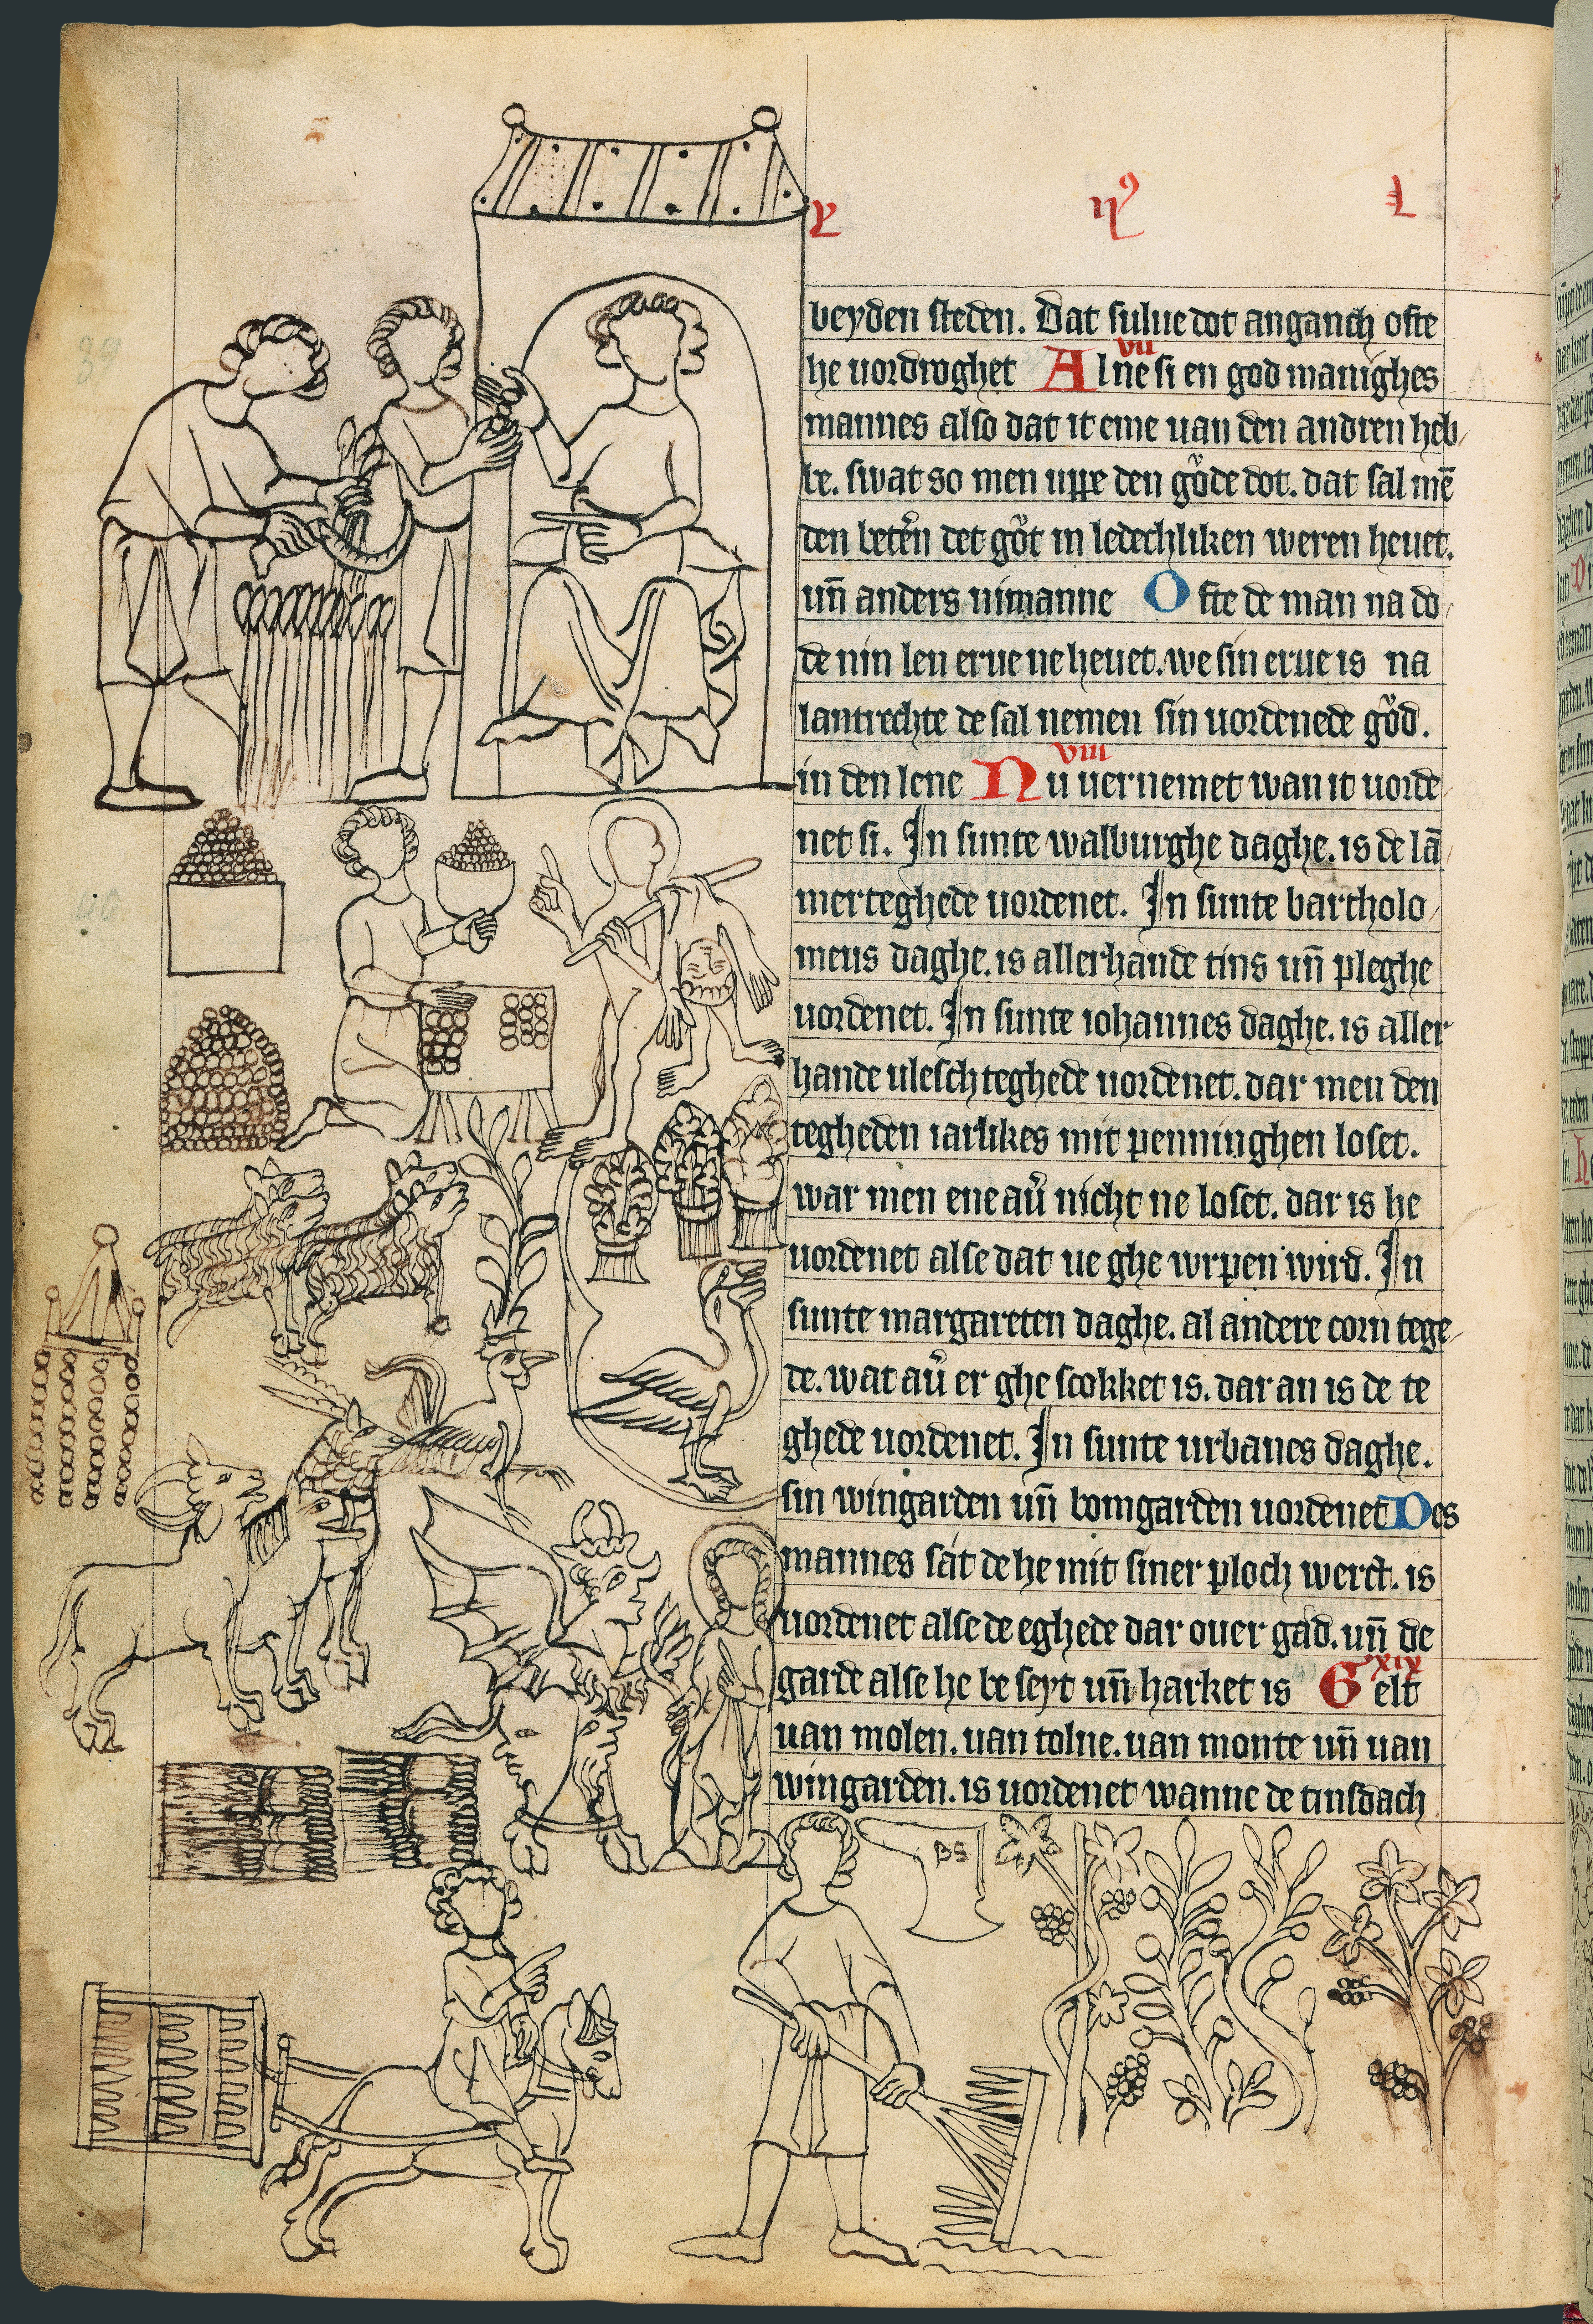 beyden steden. Dat sulue dot anganch ofte
he uordroghet Al ne si en god manighes
vii
mannes also dat it eme uan den andren heb
be. swat so men uppe den gůde dot. dat sal mē
den det gůt in ledechliken weren heuet.
uñ anders nimanne Ofte de man na do
de nin len erue ne heuet. we sin erue is na
lantrechte de sal nemen sin uordenede gůd.
in den lene Nu uernemet wan it uorde
viii
net si. In sunte walburghe daghe. is de lā
merteghede uordenet. In sunte bartholo
meus daghe. is allerhande tins uñ pleghe
uordenet. In sunte iohannes daghe. is aller
hande ulesch teghede uordenet. dar men den
tegheden iarlikes mit penninghen loset.
war men ene nicht ne loset. dar is he
uordenet alse dat ue ghe wrpen wird. In
sunte margareten daghe. al andere corn tege
de. wat er ghe stokket is. dar an is de te
ghede uordenet. In sunte urbanes daghe.
sin wingarden uñ bomgarden uordenet Des
mannes sat de he mit siner ploch werct. is
uordenet alse de eghede dar ouer gad. uñ de
garde alse he be seyt uñ harket is Gelt
xix
uan molen. uan tolne. uan monte uñ uan
wingarden. is uordenet wanne de tinsdach
39
40